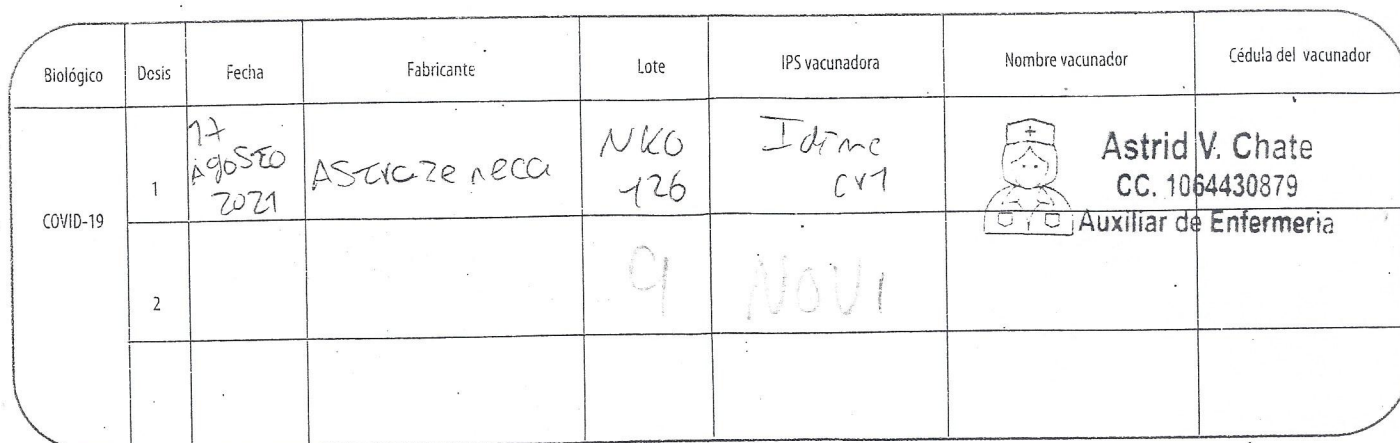 Biológico Dosis Fecha Fabricante Lote IPS vacunadora Nombre vacunador Cédula del vacunador
COVID-19
1
17
AgoSto
2021
AStraZeneca
NKO
126
Idime
cr7
Astrid V. Chate
CC. 1064430879
Auxiliar de Enfermeria
2
9 NOVI